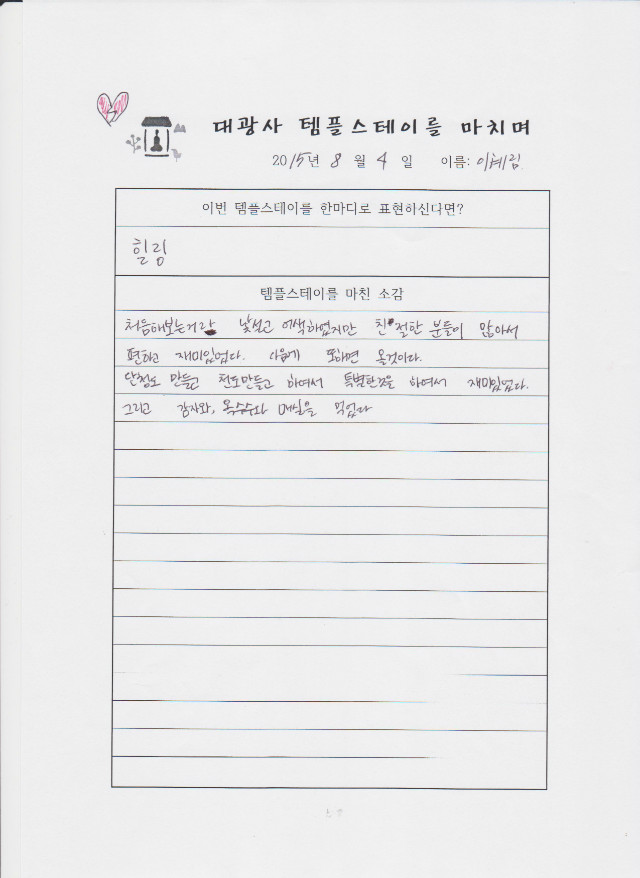 대광사 템플스테이를 마치며
2015년 8 월 4 일 이름: 이혜림
이번 템플스테이를 한마디로 표현하신다면?
힐링
템플스테이를 마친 소감
처음해보는거라 낯설고 어색하였지만 친절한 분들이 많아서
편하고 재미있었다. 다음에 또하면 올것이다.
단청도 만들고 천도만들고 하여서 특별한것을 하여서 재미있었다.
그리고 감자와, 옥수수와 매실을 먹었다